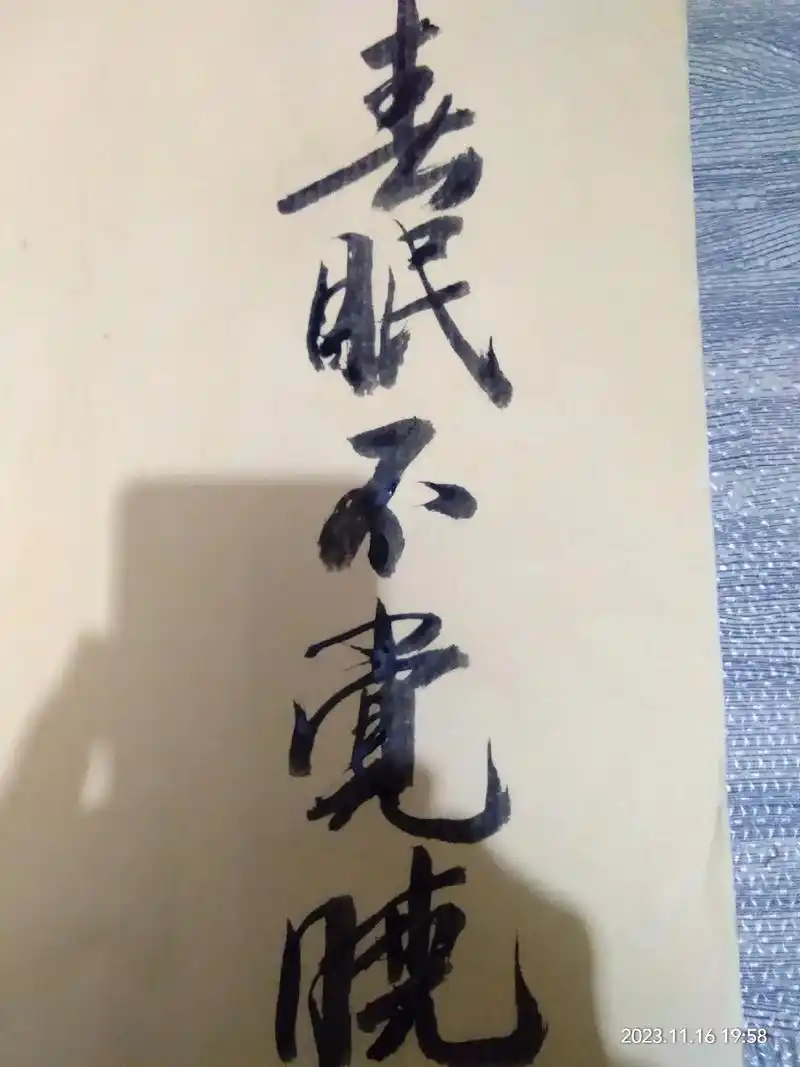 春眠不覺曉
2023.11.16 19:58